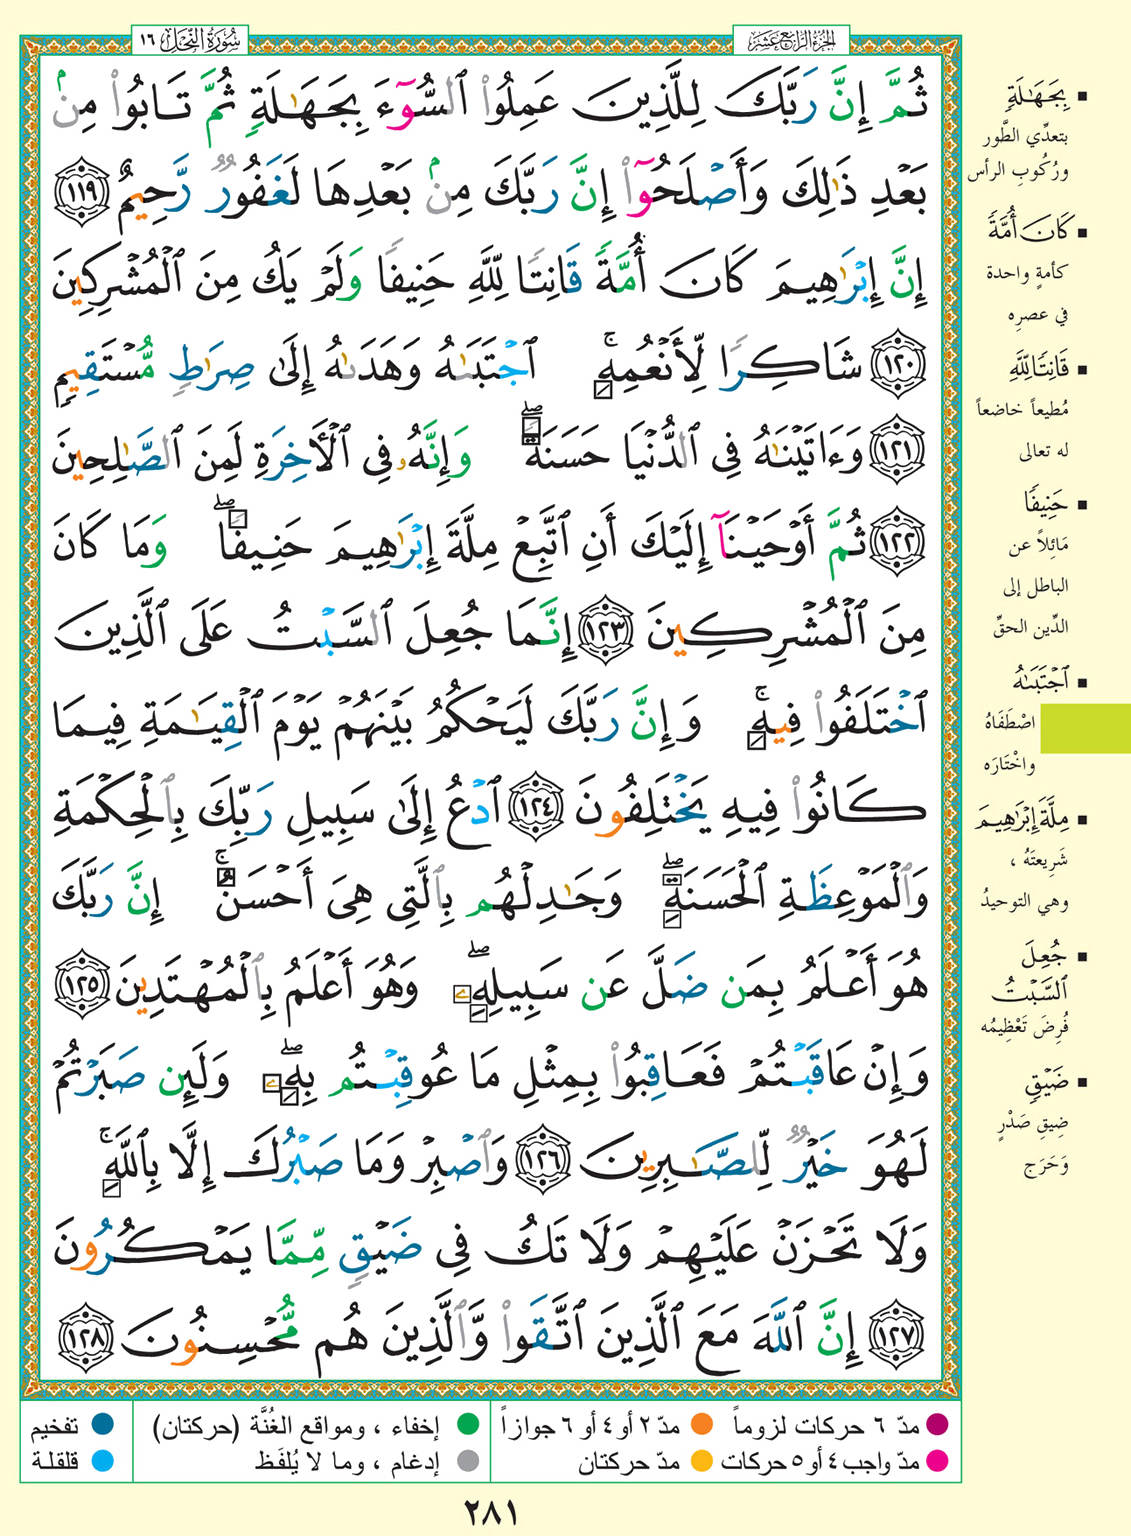 الجزء الرابع عشر
سورة النحل ١٦
ثُمَّ إِنَّ رَبَّكَ لِلَّذِينَ عَمِلُوا۟ ٱلسُّوٓءَ بِجَهَـٰلَةٍ ثُمَّ تَابُوا۟ مِنۢ
بَعْدِ ذَٰلِكَ وَأَصْلَحُوٓا۟ إِنَّ رَبَّكَ مِنۢ بَعْدِهَا لَغَفُورٌ رَّحِيمٌ ١١٩
إِنَّ إِبْرَٰهِيمَ كَانَ أُمَّةً قَانِتًا لِّلَّهِ حَنِيفًا وَلَمْ يَكُ مِنَ ٱلْمُشْرِكِينَ
١٢٠ شَاكِرًا لِّأَنْعُمِهِ ۚ ٱجْتَبَىٰهُ وَهَدَىٰهُ إِلَىٰ صِرَٰطٍ مُّسْتَقِيمٍ
١٢١ وَءَاتَيْنَـٰهُ فِى ٱلدُّنْيَا حَسَنَةً ۖ وَإِنَّهُۥ فِى ٱلْأَخِرَةِ لَمِنَ ٱلصَّـٰلِحِينَ
١٢٢ ثُمَّ أَوْحَيْنَآ إِلَيْكَ أَنِ ٱتَّبِعْ مِلَّةَ إِبْرَٰهِيمَ حَنِيفًا ۖ وَمَا كَانَ
مِنَ ٱلْمُشْرِكِينَ ١٢٣ إِنَّمَا جُعِلَ ٱلسَّبْتُ عَلَى ٱلَّذِينَ
ٱخْتَلَفُوا۟ فِيهِ ۚ وَإِنَّ رَبَّكَ لَيَحْكُمُ بَيْنَهُمْ يَوْمَ ٱلْقِيَـٰمَةِ فِيمَا
كَانُوا۟ فِيهِ يَخْتَلِفُونَ ١٢٤ ٱدْعُ إِلَىٰ سَبِيلِ رَبِّكَ بِٱلْحِكْمَةِ
وَٱلْمَوْعِظَةِ ٱلْحَسَنَةِ ۖ وَجَـٰدِلْهُم بِٱلَّتِى هِىَ أَحْسَنُ ۚ إِنَّ رَبَّكَ
هُوَ أَعْلَمُ بِمَن ضَلَّ عَن سَبِيلِهِ ۖ وَهُوَ أَعْلَمُ بِٱلْمُهْتَدِينَ ١٢٥
وَإِنْ عَاقَبْتُمْ فَعَاقِبُوا۟ بِمِثْلِ مَا عُوقِبْتُم بِهِ ۖ وَلَئِن صَبَرْتُمْ
لَهُوَ خَيْرٌ لِّلصَّـٰبِرِينَ ١٢٦ وَٱصْبِرْ وَمَا صَبْرُكَ إِلَّا بِٱللَّهِ ۚ
وَلَا تَحْزَنْ عَلَيْهِمْ وَلَا تَكُ فِى ضَيْقٍ مِّمَّا يَمْكُرُونَ
١٢٧ إِنَّ ٱللَّهَ مَعَ ٱلَّذِينَ ٱتَّقَوا۟ وَّٱلَّذِينَ هُم مُّحْسِنُونَ ١٢٨
▪ بِجَهَـٰلَةٍ
بتعدِّي الطَّور
ورُكُوبِ الرأس
▪ كَانَ أُمَّةً
كأمةٍ واحدة
في عصرِه
▪ قَانِتًا لِّلَّهِ
مُطيعاً خاضعاً
له تعالى
▪ حَنِيفًا
مَائِلاً عن
الباطل إلى
الدِّين الحقِّ
▪ ٱجْتَبَىٰهُ
اصْطَفَاهُ
واخْتَارَه
▪ مِلَّةَ إِبْرَٰهِيمَ
شَرِيعتَهُ ،
وهي التوحيدُ
▪ جُعِلَ
ٱلسَّبْتُ
فُرِضَ تَعْظِيمُه
▪ ضَيْقٍ
ضِيقِ صَدْرٍ
وَحَرَج
مدّ ٦ حركات لزوماً
مدّ ٢ أو ٤ أو ٦ جوازاً
إخفاء ، ومواقع الغُنَّة (حركتان)
تفخيم
مدّ واجب ٤ أو ٥ حركات
مدّ حركتان
إدغام ، وما لا يُلفَظ
قلقلة
٢٨١